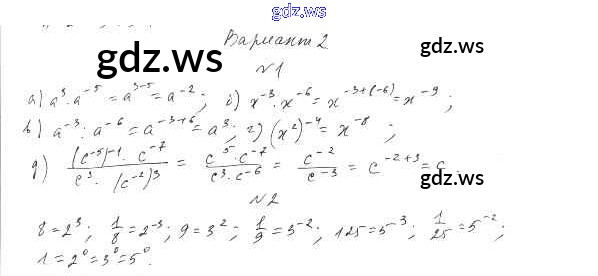 gdz.ws
Вариант 2
gdz.ws
gdz.ws
N1
а) a³·a⁻⁵ = a³⁻⁵ = a⁻²; б) x⁻³·x⁻⁶ = x⁻³⁺⁽⁻⁶⁾ = x⁻⁹;
в) a⁻³ : a⁻⁶ = a⁻³⁺⁶ = a³; г) (x²)⁻⁴ = x⁻⁸;
д) (c⁻⁵)⁻¹·c⁻⁷ / c³·(c⁻²)³ = c⁵·c⁻⁷ / c³·c⁻⁶ = c⁻² / c⁻³ = c⁻²⁺³ = c.
gdz.ws
N2
8 = 2³; 1/8 = 2⁻³; 9 = 3²; 1/9 = 3⁻²; 125 = 5⁻³; 1/25 = 5⁻²;
1 = 2⁰ = 3⁰ = 5⁰.
gdz.ws
gdz.ws